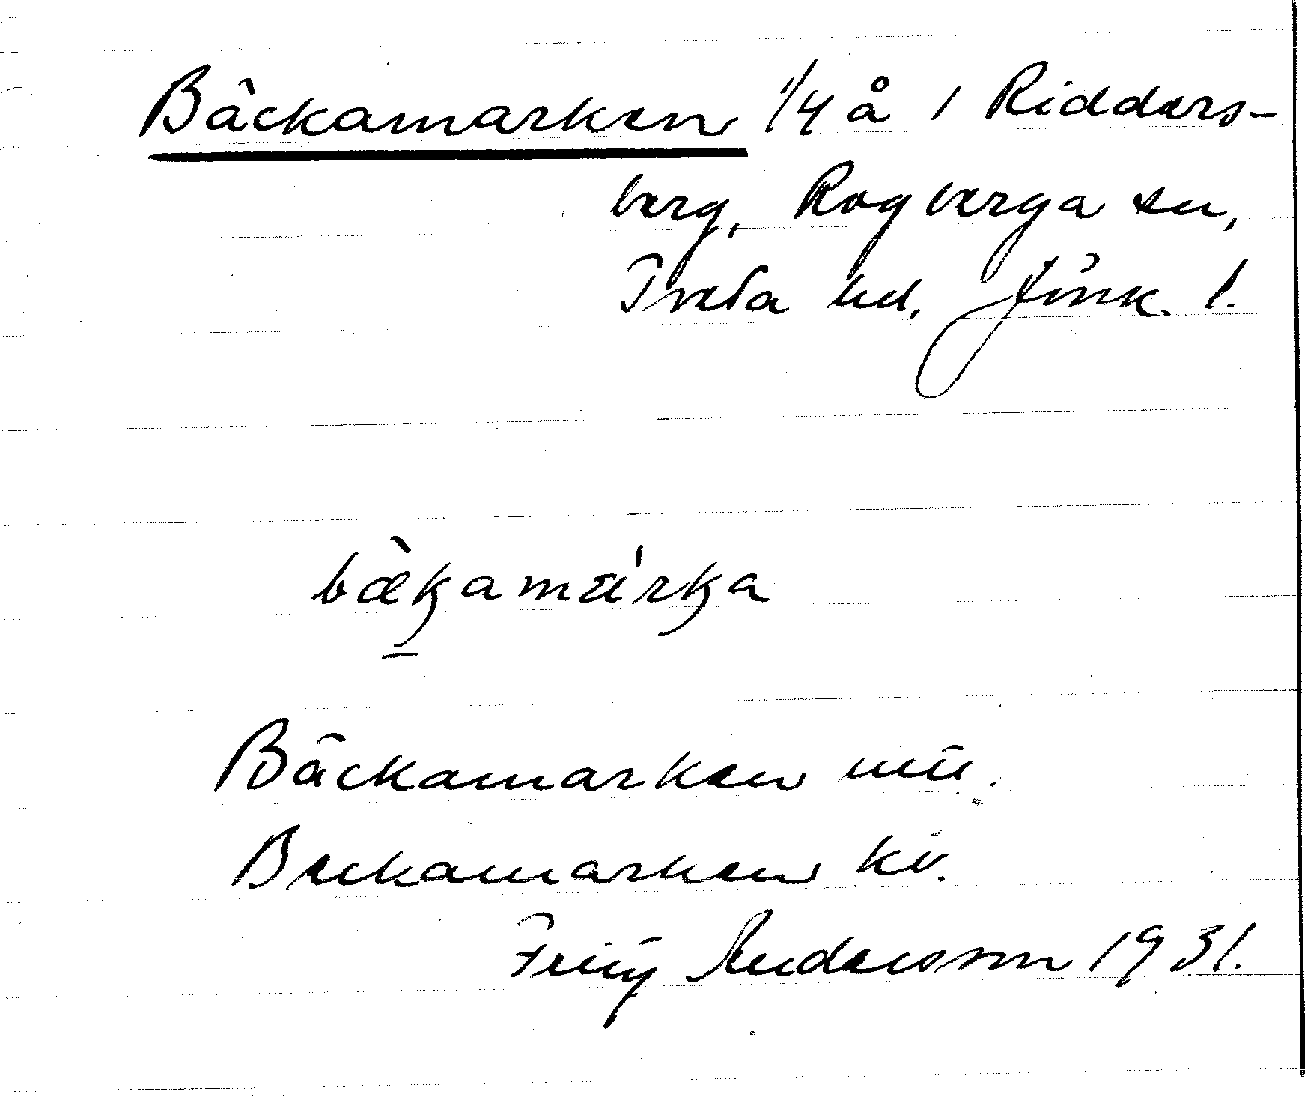 Bäckamarken 1/4 å 1 Ridders-
berg, Rogberga sn,
Tveta hd. Jönk. l.
Bäckamarken
Beckamarken kv.
Andersson 1931.